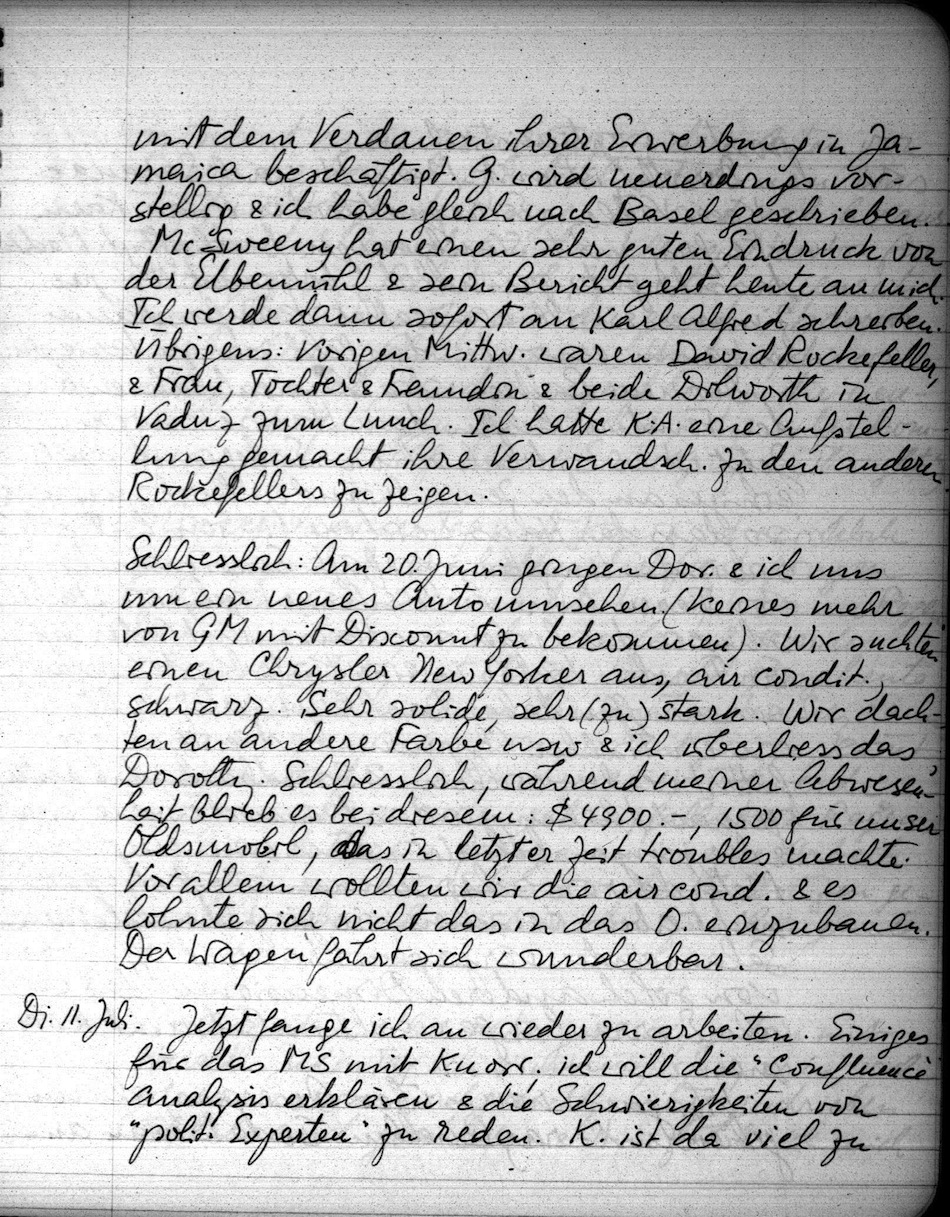 mit dem Verdauen ihrer Erwerbung in Ja-
maica beschäftigt. G. wird neuerdings vor-
stellig & ich habe gleich nach Basel geschrieben.
Mc Sweeny hat einen sehr guten Eindruck von
der Elbemühl & sein Bericht geht heute an mich.
Ich werde dann sofort an Karl Alfred schreiben.
Übrigens: Vorigen Mittw. waren David Rockefeller,
& Frau, Tochter & Freundin & beide Dilworth in
Vaduz zum Lunch. Ich hatte K.A. eine Aufstel-
lung gemacht ihre Verwandsch. zu den anderen
Rockefellers zu zeigen.
Schliesslich: Am 20. Juni gingen Dor. & ich uns
um ein neues Auto umsehen. (Keines mehr
von GM mit Discount zu bekommen). Wir suchten
einen Chrysler New Yorker aus, air condit.,
schwarz. Sehr solide, sehr (zu) stark. Wir dach-
ten an andere Farbe usw & ich überliess das
Dorothy. Schliesslich, während meiner Abwesen-
heit blieb es bei diesem: $ 4900.-, 1500 für unser
Oldsmobil, das in letzter Zeit troubles machte.
Vor allem wollten wir die air cond. & es
lohnte sich nicht das in das O. einzubauen.
Der Wagen fährt sich wunderbar.
Di. 11. Juli. Jetzt fange ich an wieder zu arbeiten. Einiges
für das MS mit Knorr; ich will die "Confluence"
analysis erklären & die Schwierigkeiten von
"polit. Experten" zu reden. K. ist da viel zu